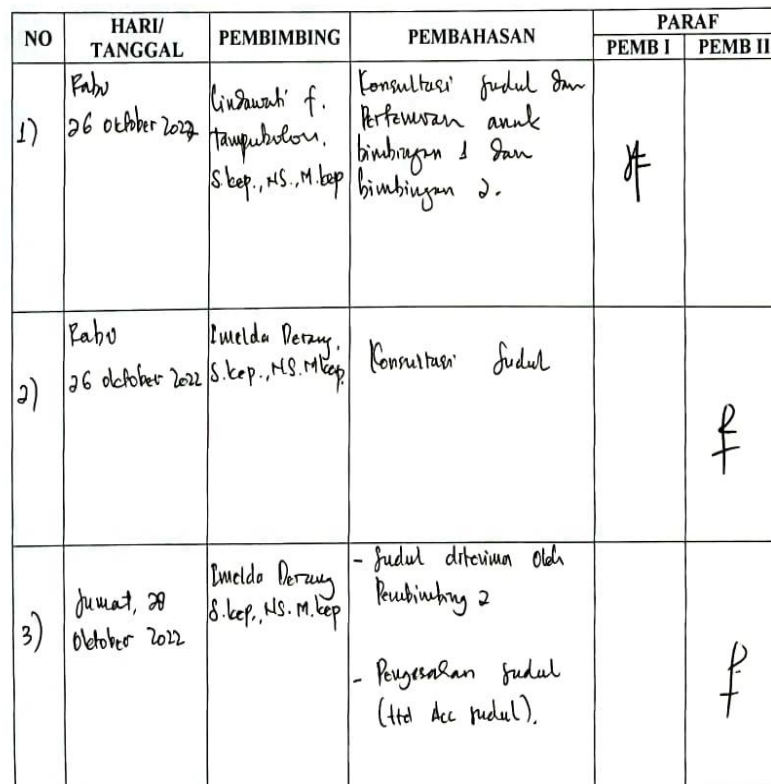 NO HARI/ TANGGAL PEMBIMBING PEMBAHASAN PARAF
PEMB I PEMB II
1)
Rabu
26 oktober 2022
Lindawati f.
tampubolon.
S.kep., NS., M.kep
Konsultasi judul dan
Pertemuan anak
bimbingan 1 dan
bimbingan 2.
2)
Rabu
26 oktober 2022
Imelda Derang.
S.kep., NS. M.kep.
Konsultasi Judul
3)
Jumat, 28
Oktober 2022
Imelda Derang
S.kep., NS. M.kep
- Judul diterima Oleh
Pembimbing 2
- Pengesahan judul
(ttd Acc judul).